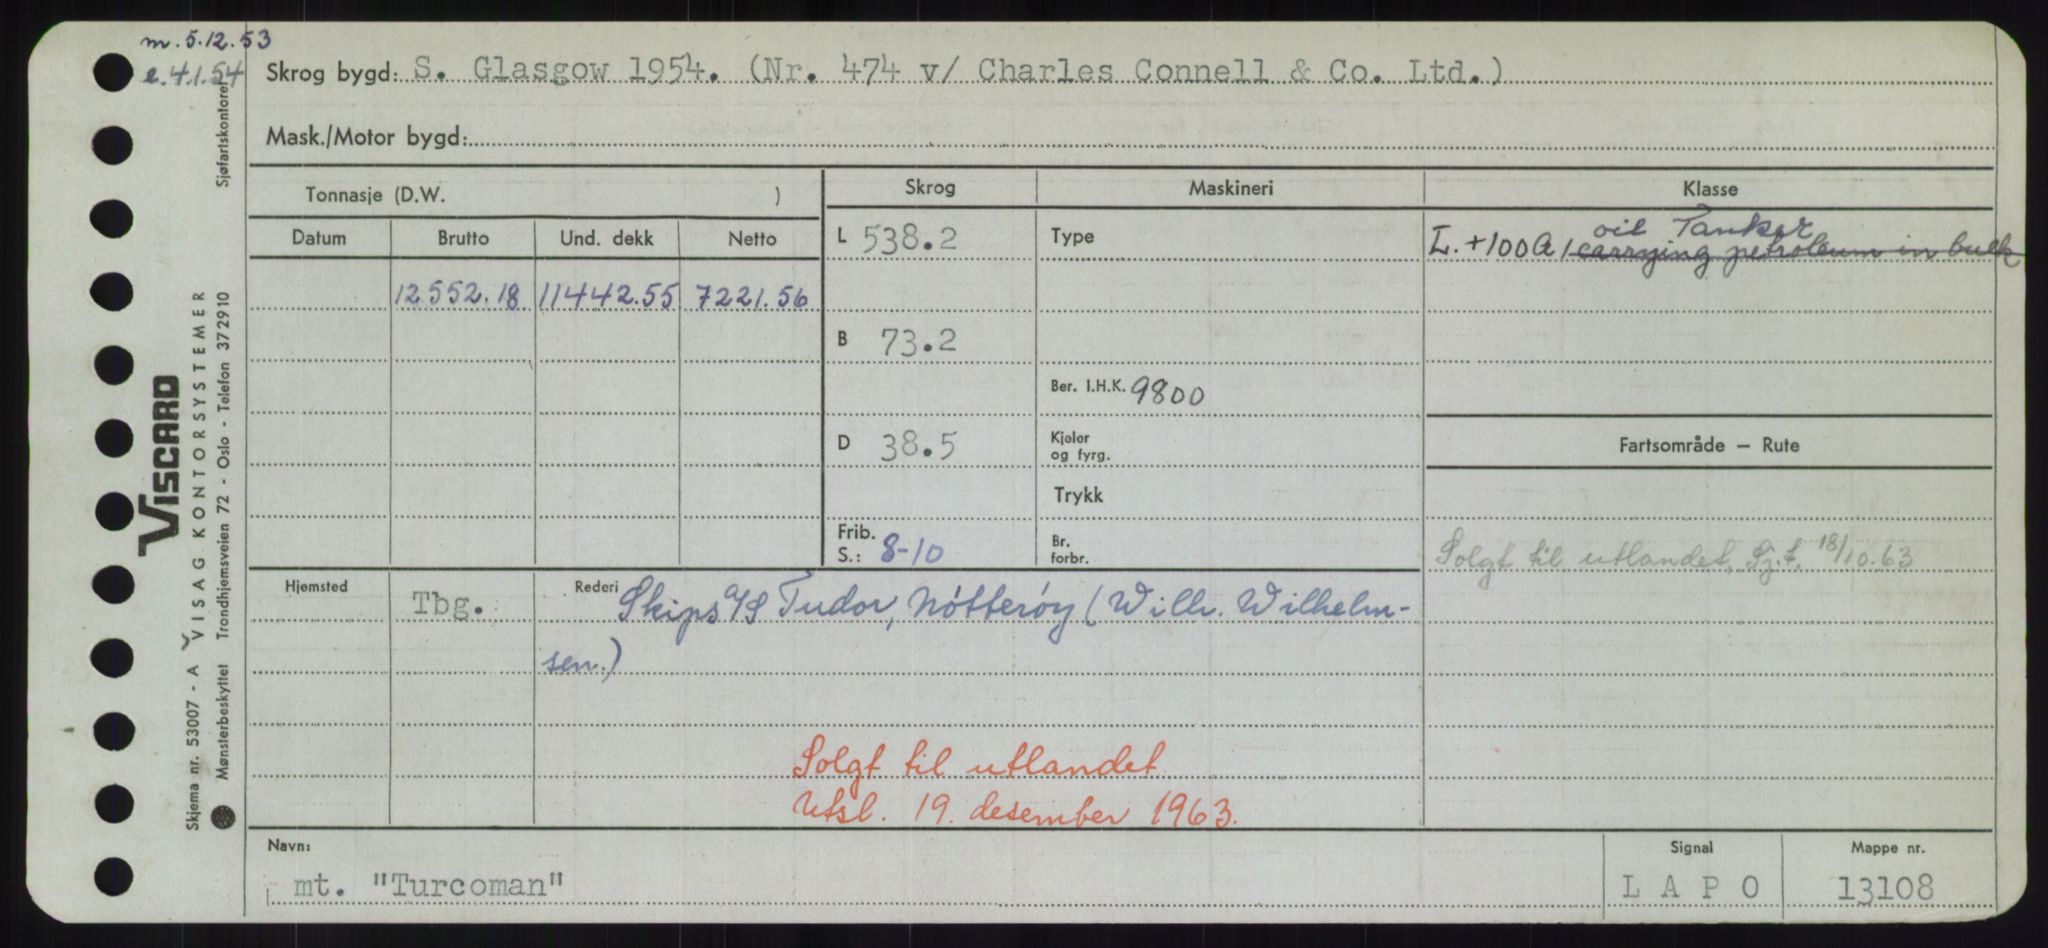 m. 5.12.53
e. 4.1.54
Skrog bygd: S. Glasgow 1954. (Nr. 474 v/ Charles Connell & Co. Ltd.)
Mask./Motor bygd:
Tonnasje (D.W. )
Skrog
Maskineri
Klasse
Datum
Brutto
Und. dekk
Netto
L 538.2
Type
oil Tanker
L. +100A1 carrying petroleum in bulk
12552.18
11442.55
7221.56
B 73.2
Ber. I.H.K. 9800
D 38.5
Kjeler
og fyrg.
Fartsområde – Rute
Trykk
Frib.
S.: 8-10
Br.
forbr.
Solgt til utlandet, Sj.t. 18/10.63
Hjemsted
Tbg.
Rederi
Skips A/S Tudor, Nötteröy (Wilh. Wilhelm-
sen.)
Solgt til utlandet.
Utsl. 19. desember 1963.
Navn:
mt. "Turcoman"
Signal
L A P O
Mappe nr.
13108
VISCARD
Skjema nr. 53007 - A VISAG KONTORSYSTEMER
Mønsterbeskyttet Trondhjemsveien 72 - Oslo - Telefon 372910
Sjøfartskontoret